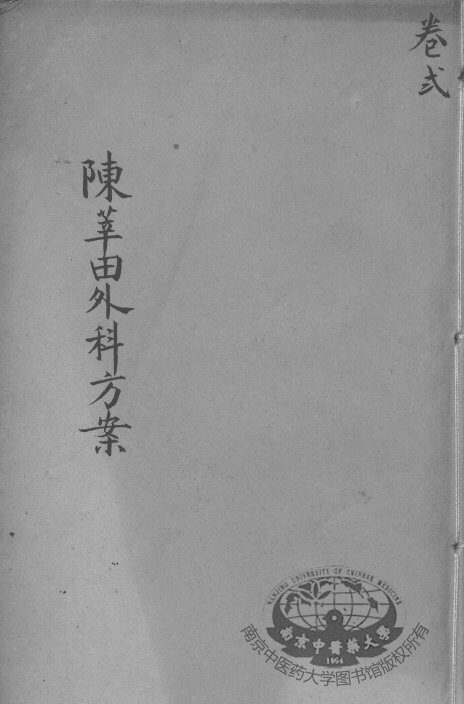 卷弍
陳莘田外科方案
NANJING UNIVERSITY OF CHINESE MEDICINE
南京中醫藥大學
1954
南京中医药大学图书馆版权所有